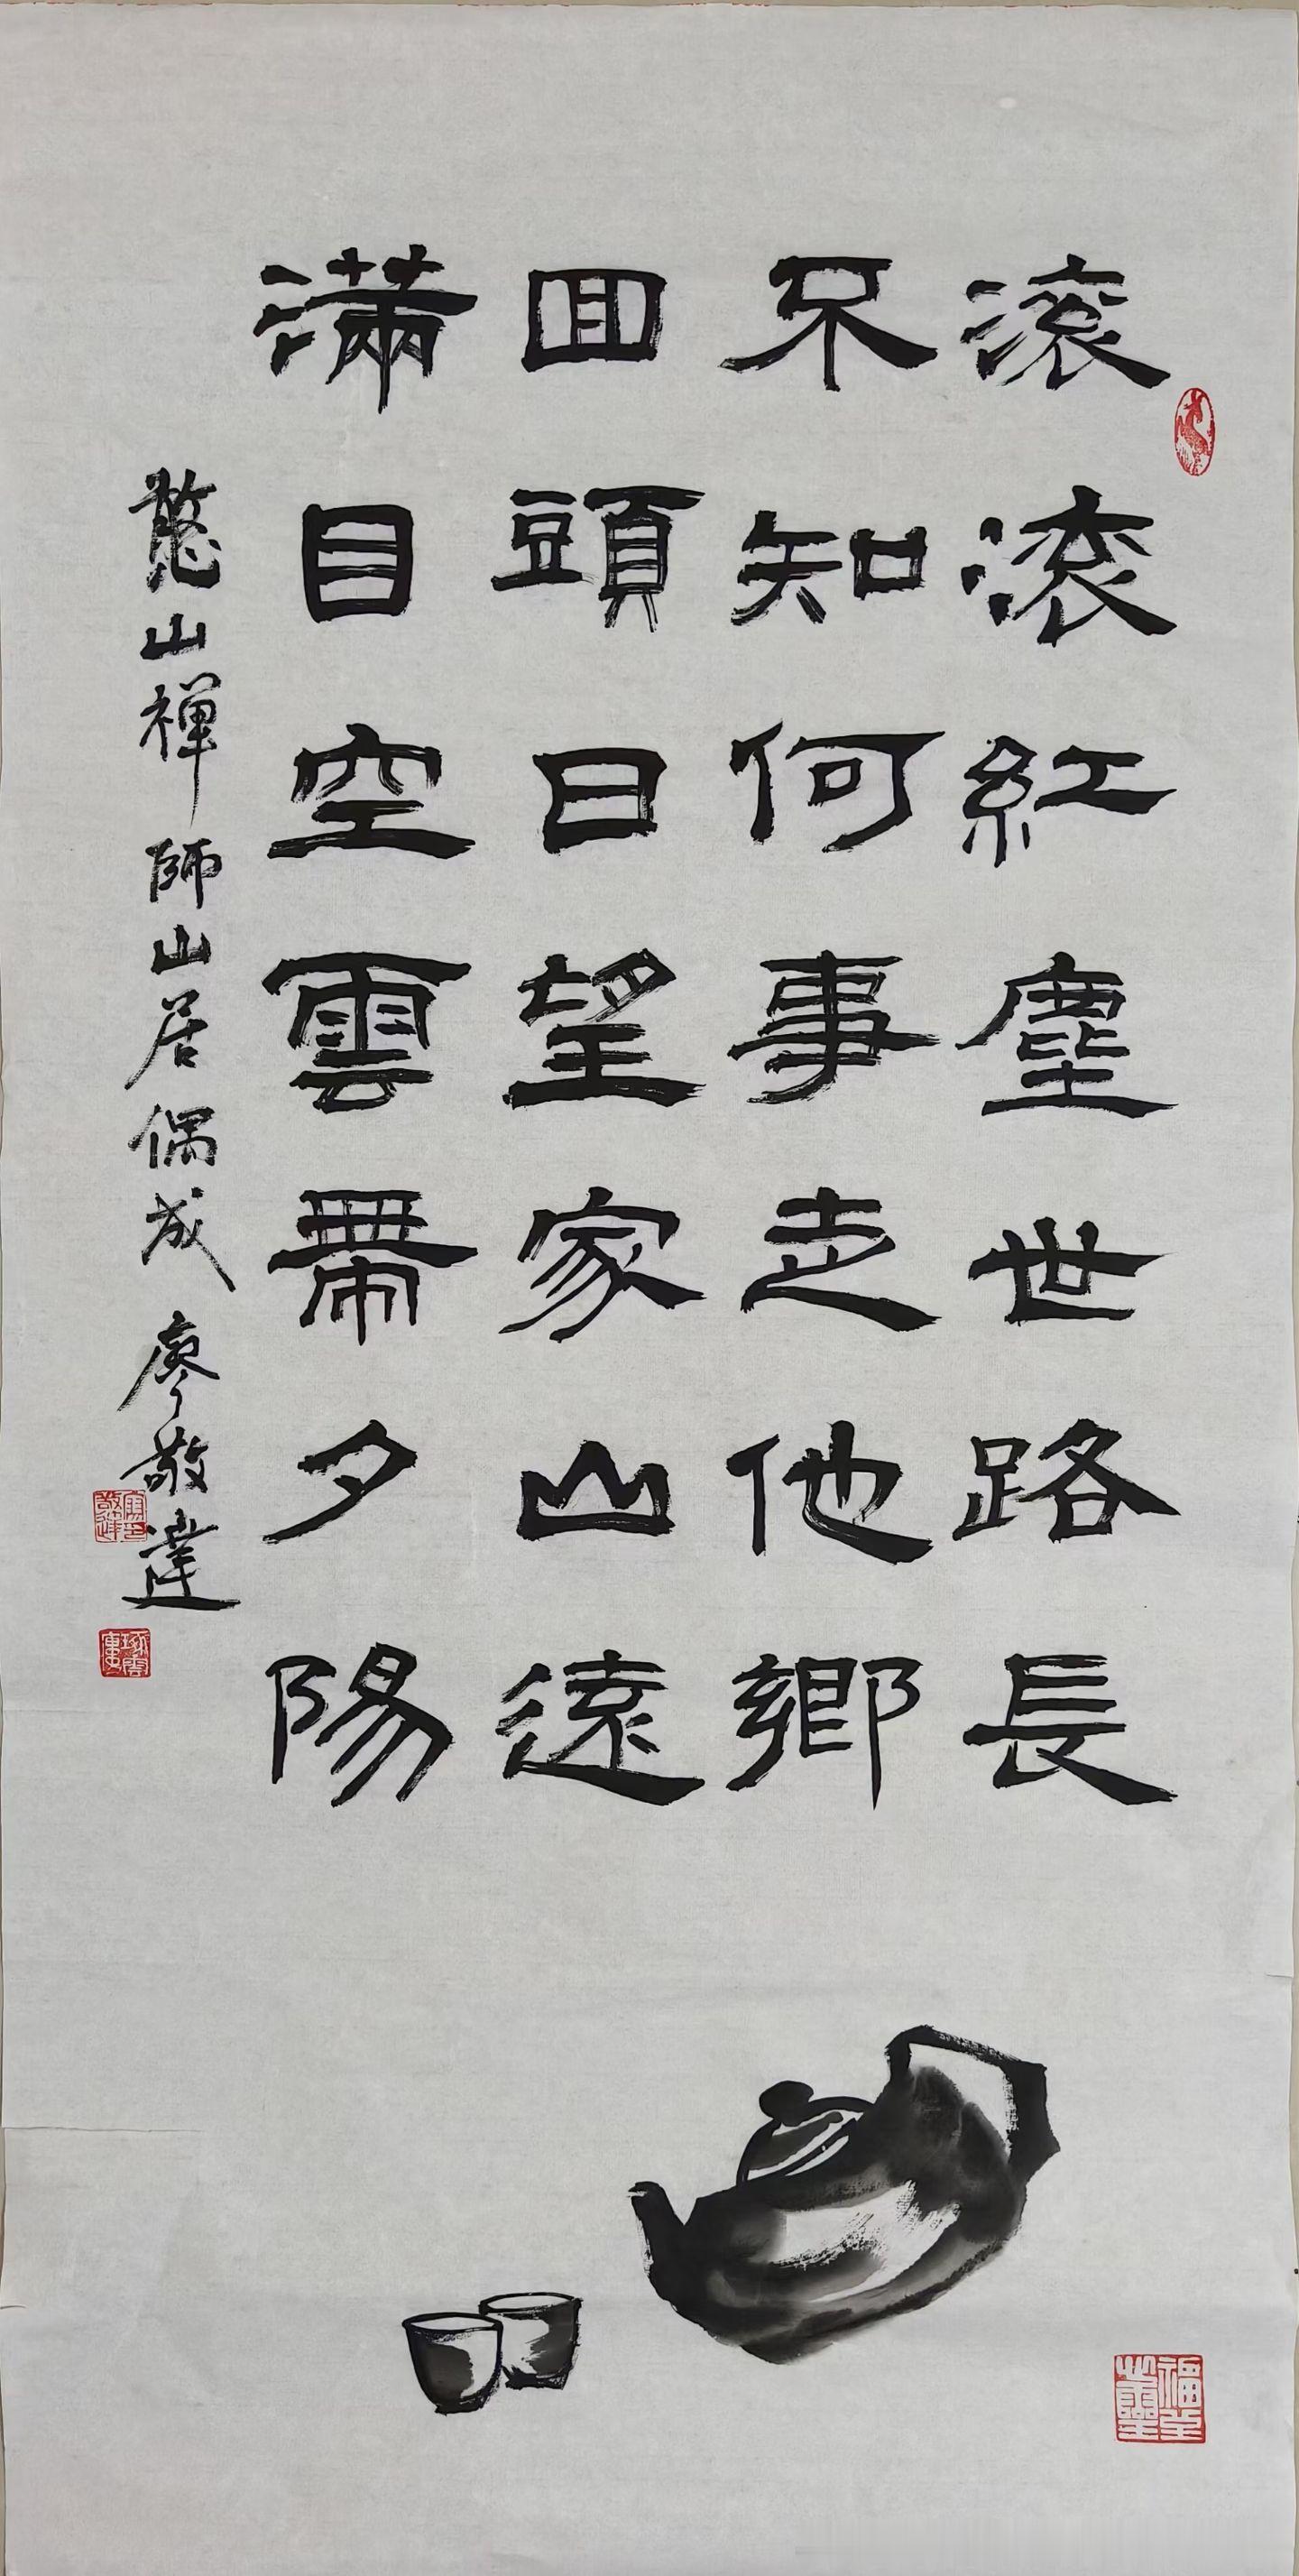 滾滾紅塵世路長
不知何事走他鄉
回頭日望家山遠
滿目空雲帶夕陽
憨山禪師山居偶成 廖敬達